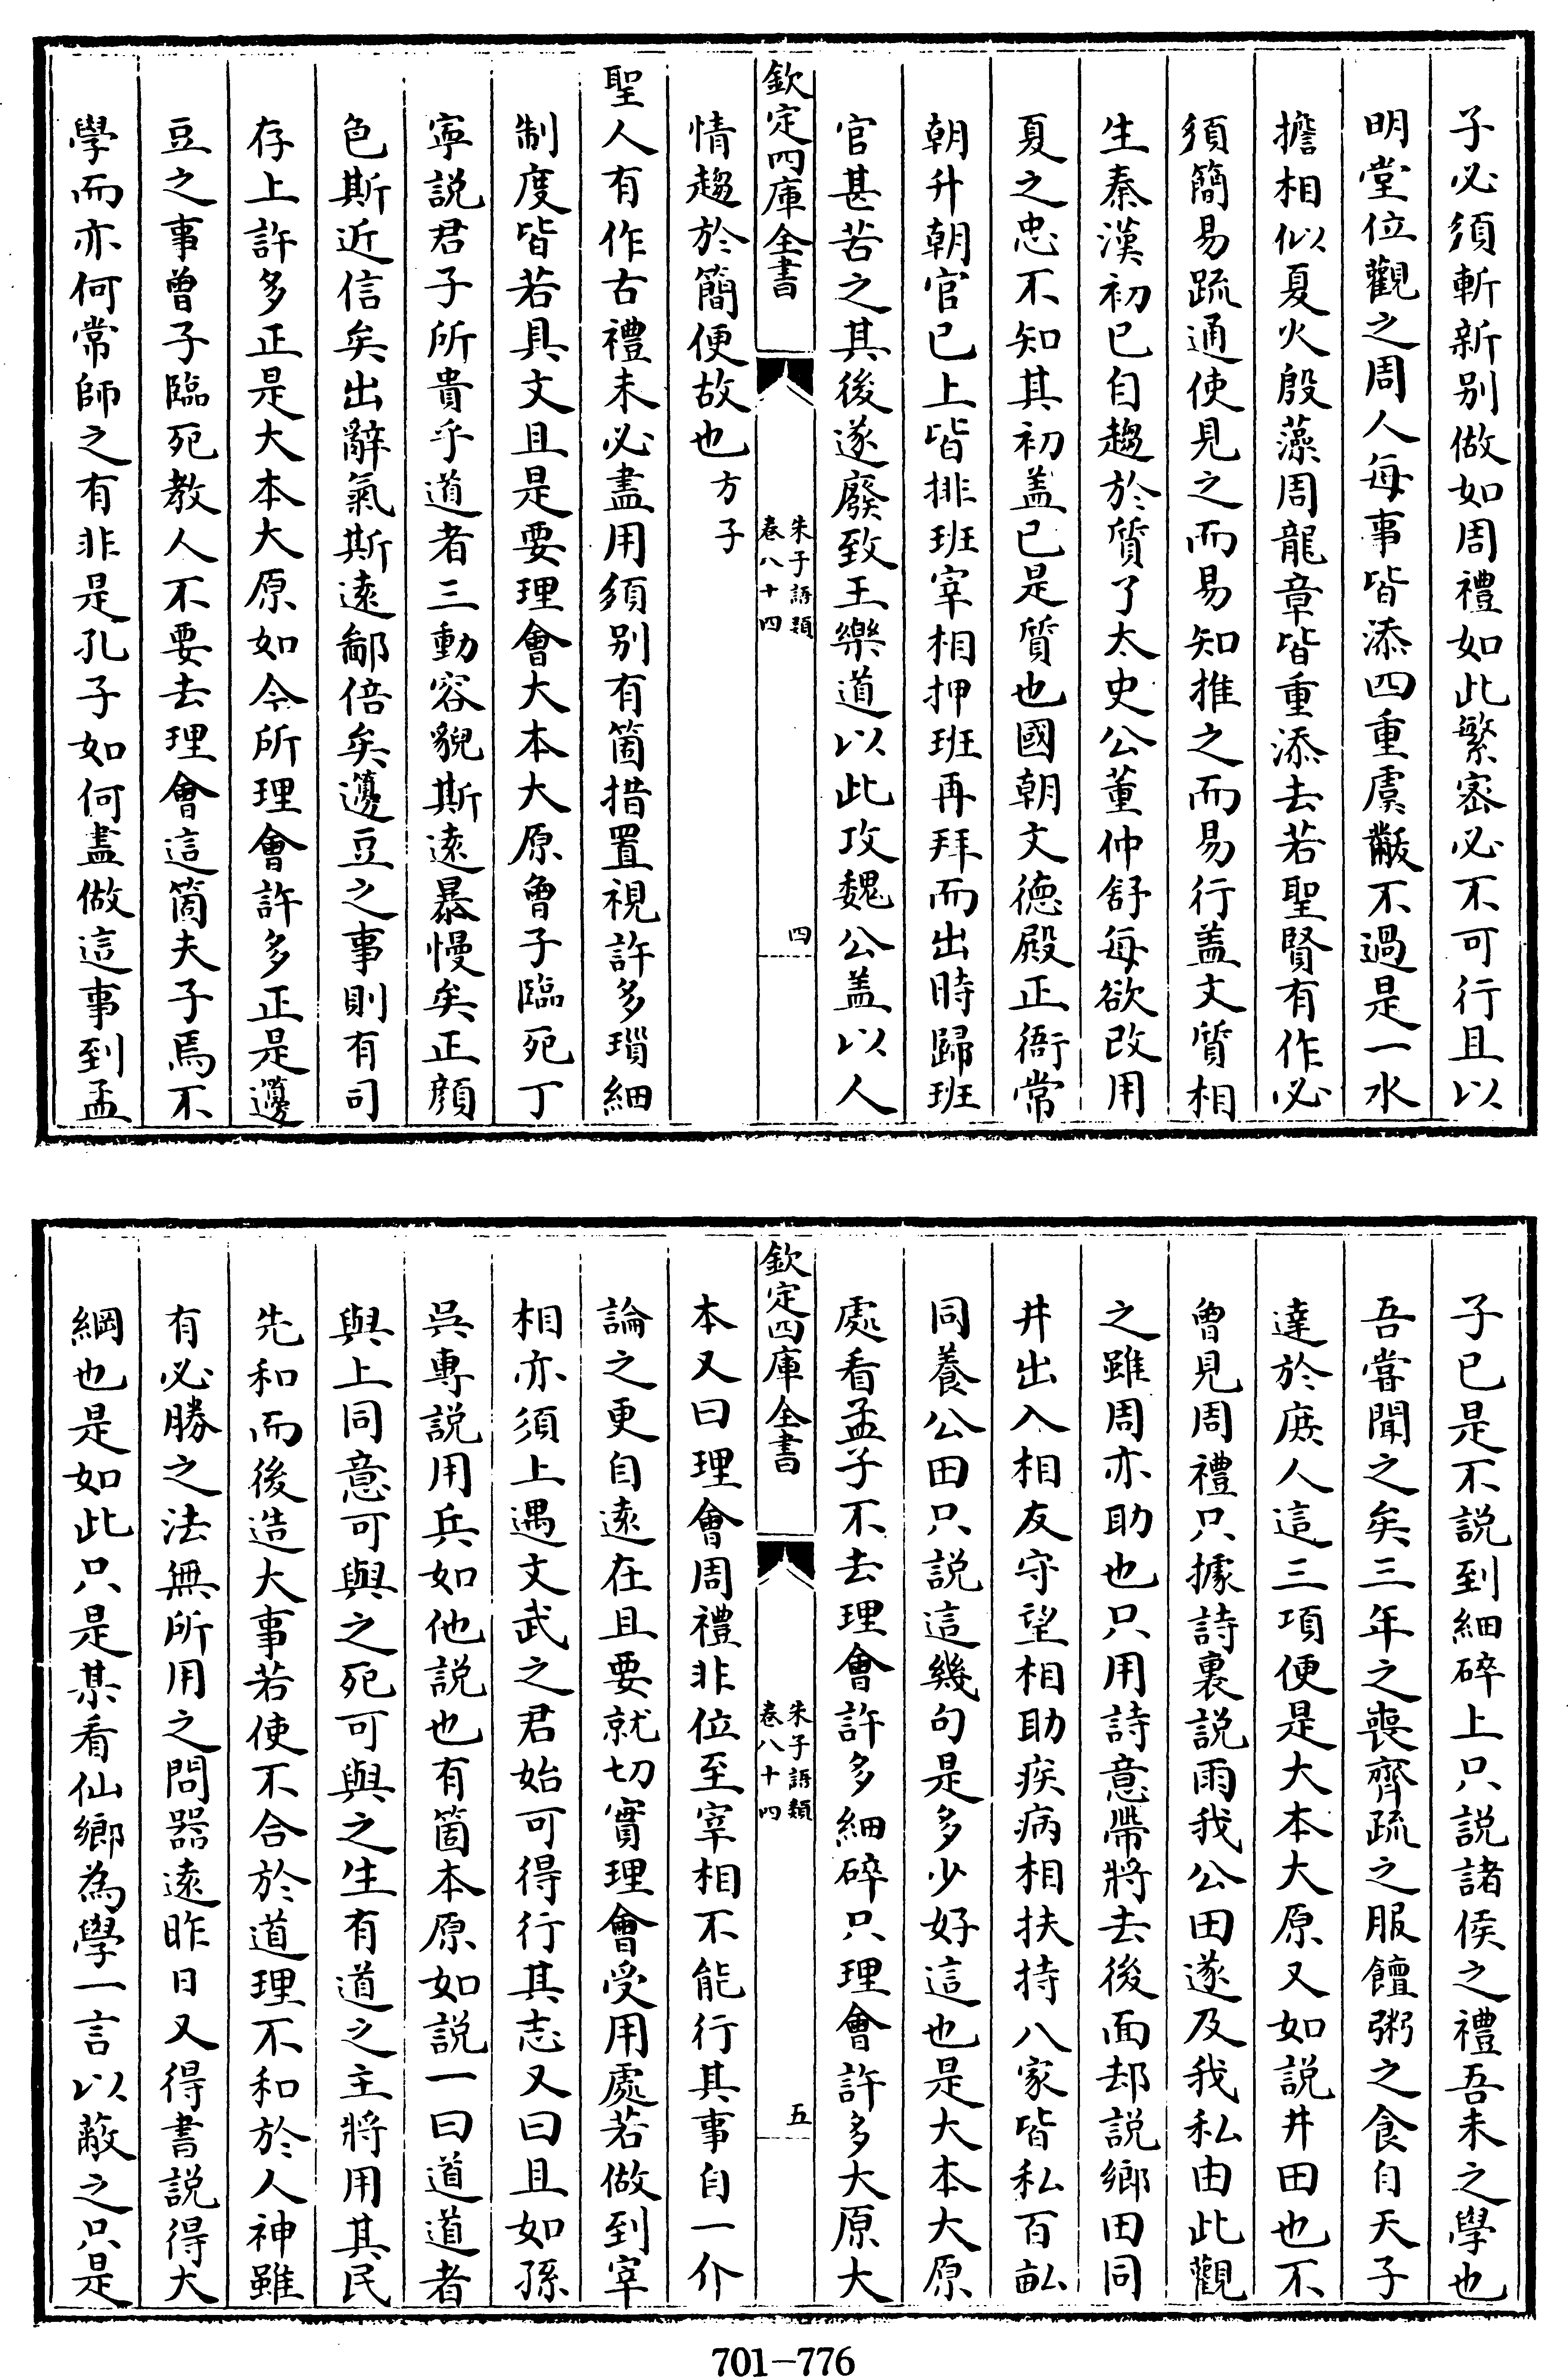 子必須斬新别做如周禮如此繁宻必不可行且以
明堂位觀之周人每事皆添四重虞黻不過是一水
擔相似夏火殷藻周龍章皆重添去若聖賢有作必
須簡易疏通使見之而易知推之而易行盖文質相
生秦漢初已自趨於質了太史公董仲舒每欲改用
夏之忠不知其初盖已是質也國朝文德殿正衙常
朝升朝官已上皆排班宰相押班再拜而出時歸班
官甚苦之其後遂廢致王樂道以此攻魏公盖以人
欽定四庫全書
朱子語類
卷八十四
四
情趨於簡便故也方子
聖人有作古禮未必盡用須别有箇措置視許多瑣細
制度皆若具文且是要理會大本大原曾子臨死丁
寜説君子所貴乎道者三動容貌斯逺暴慢矣正顔
色斯近信矣出辭氣斯逺鄙倍矣籩豆之事則有司
存上許多正是大本大原如今所理會許多正是籩
豆之事曾子臨死教人不要去理會這箇夫子焉不
學而亦何常師之有非是孔子如何盡做這事到孟
子已是不説到細碎上只説諸侯之禮吾未之學也
吾嘗聞之矣三年之喪齊疏之服饘粥之食自天子
達於庶人這三項便是大本大原又如説井田也不
曾見周禮只據詩裏説雨我公田遂及我私由此觀
之雖周亦助也只用詩意帶將去後面却説鄉田同
井出入相友守望相助疾病相扶持八家皆私百畝
同養公田只説這幾句是多少好這也是大本大原
處看孟子不去理會許多細碎只理會許多大原大
欽定四庫全書
朱子語類
卷八十四
五
本又曰理會周禮非位至宰相不能行其事自一介
論之更自逺在且要就切實理會受用處若做到宰
相亦須上遇文武之君始可得行其志又曰且如孫
吳專説用兵如他説也有箇本原如説一曰道道者
與上同意可與之死可與之生有道之主將用其民
先和而後造大事若使不合於道理不和於人神雖
有必勝之法無所用之問器逺昨日又得書説得大
綱也是如此只是某看仙鄉為學一言以蔽之只是
701—776